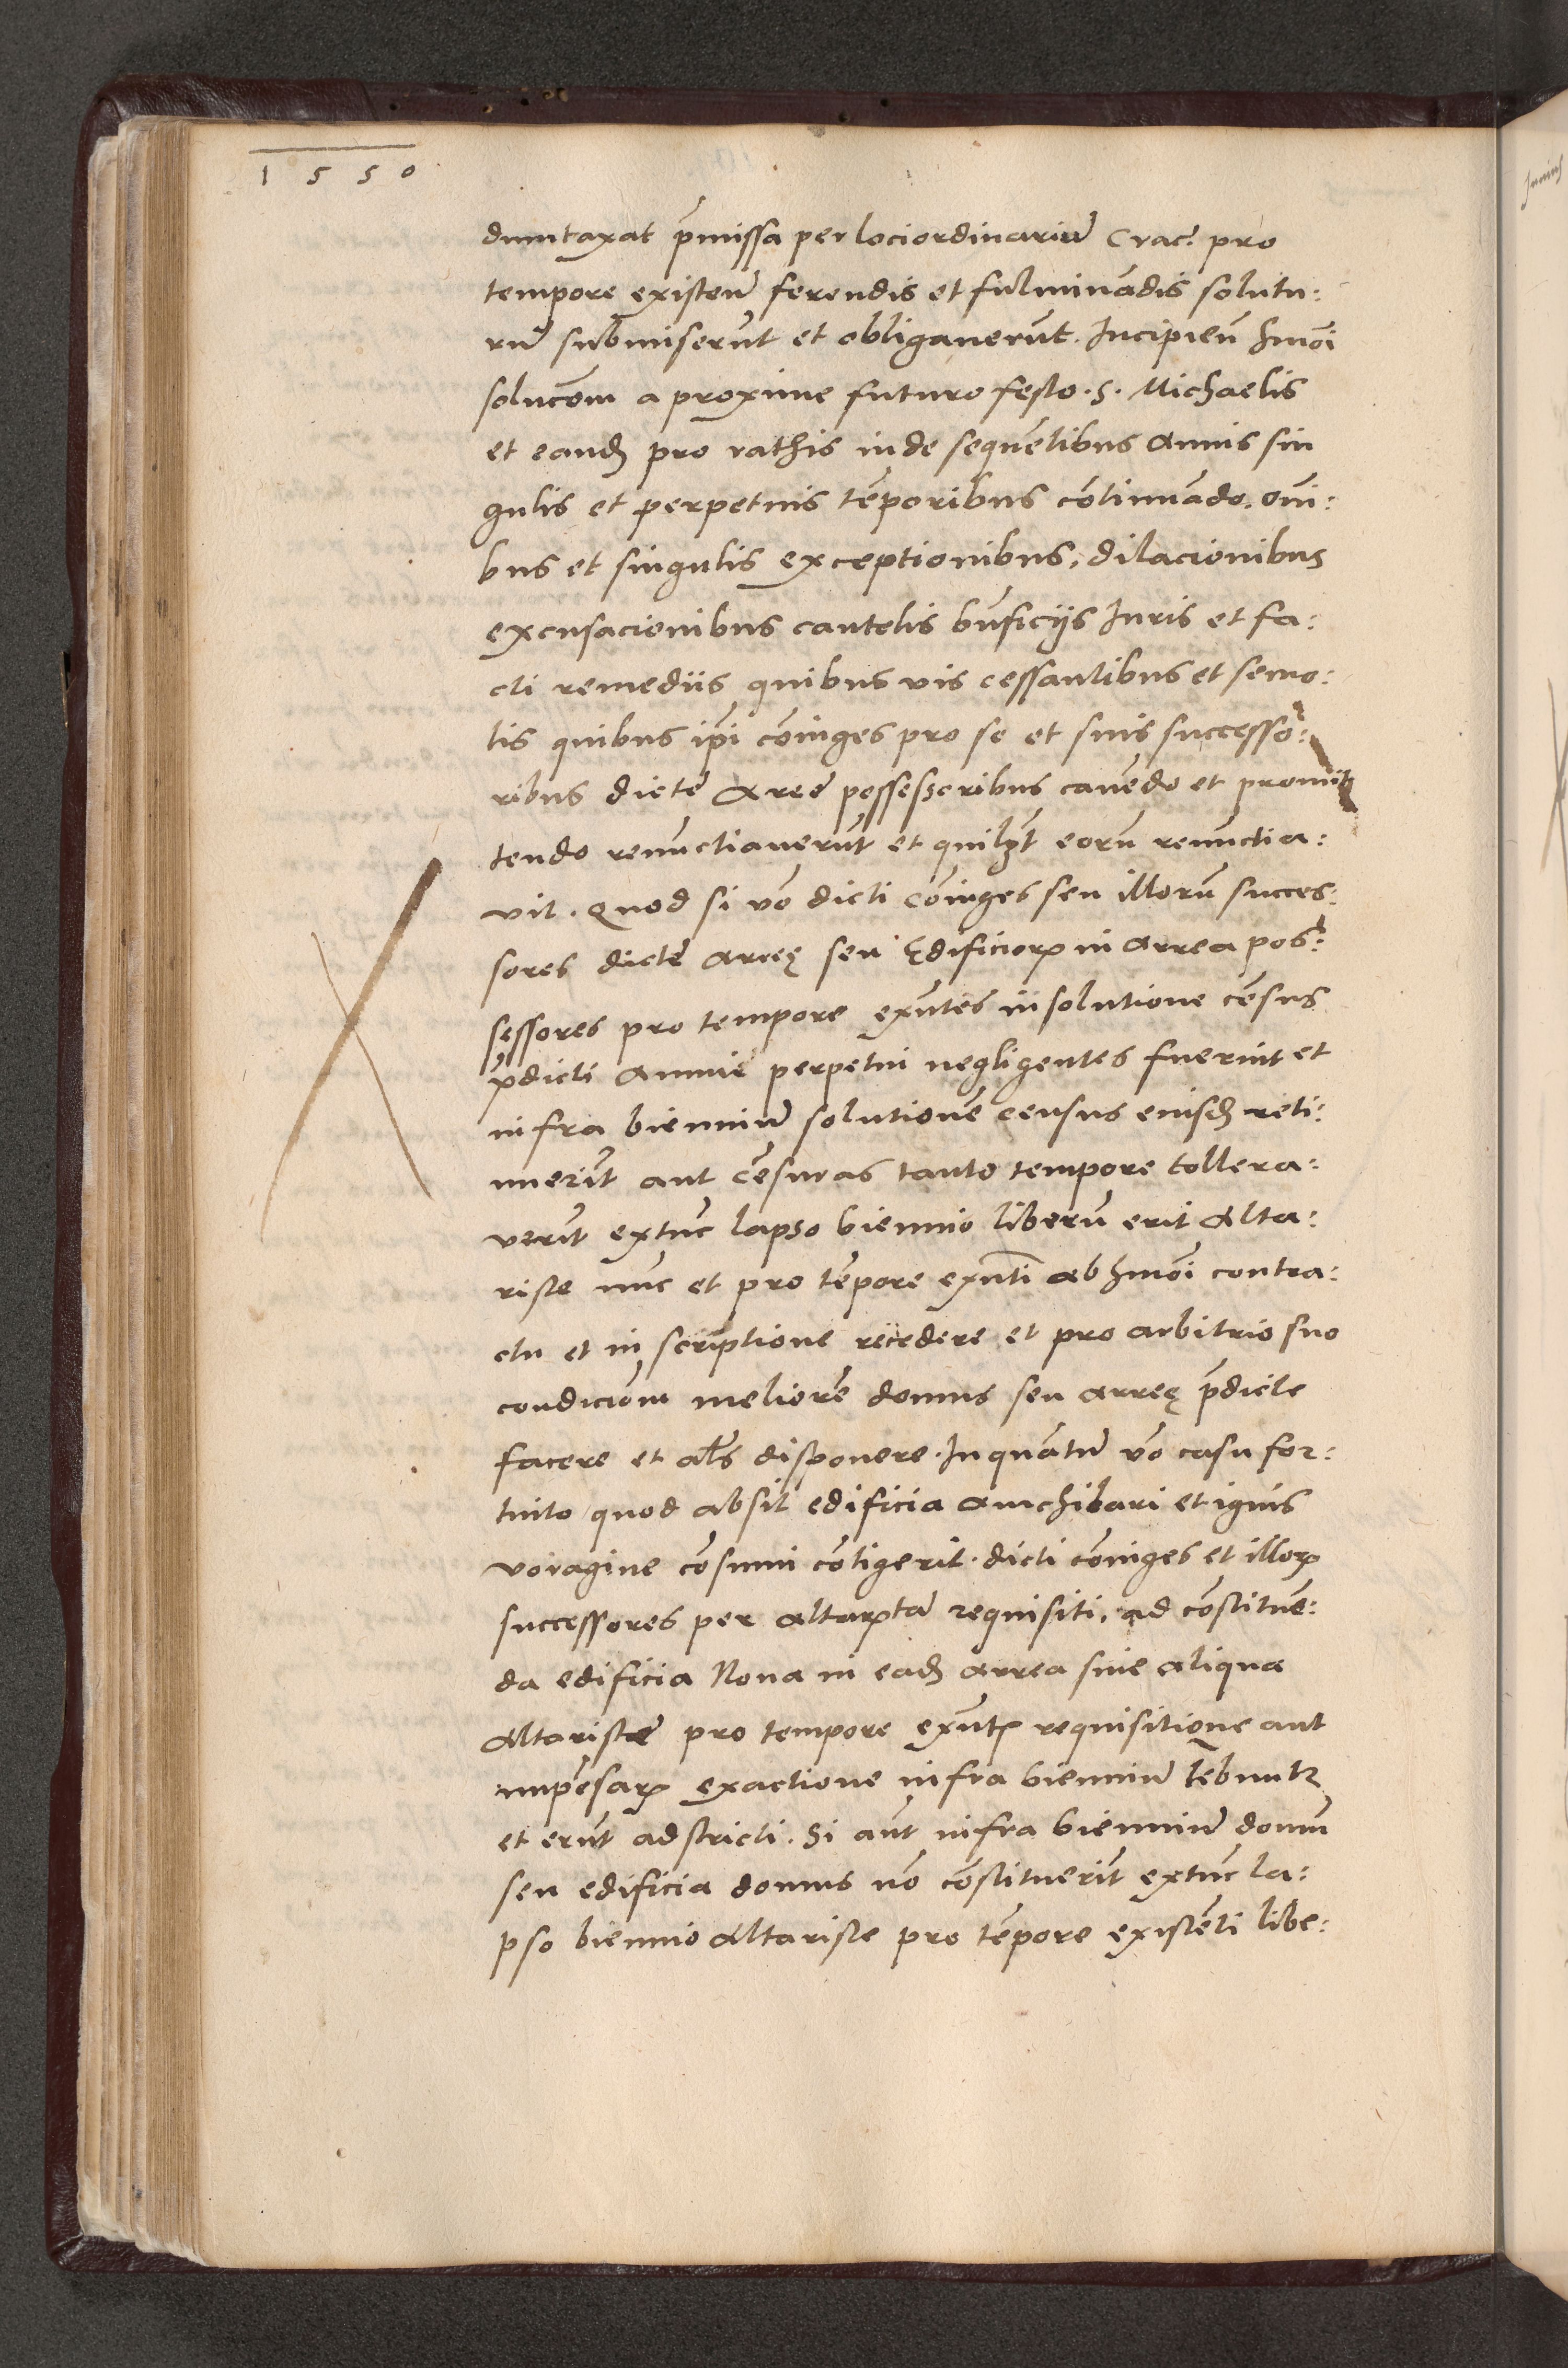 1550
dumtaxat p̄missa per lociordinariū Crac. pro
tempore existeñ ferendis et fulminādis solutu:
rū submiserūt et obligauerūt. Incipieñ hmōi
solucōm a proxime futuro festo .S. Michaelis
et eandȩ pro rathis inde sequētibus Annis sin
gulis et perpetuis tēporibus cōtinuādo. om̄i:
bus et singulis exceptionibus, dilacionibus
excusacionibus cautelis bn̄ficijs Iuris et fa:
cti remediis quibus vis cessantibus et semo:
tis quibus ip̄i cōiuges pro se et suis successo:
ribus dicte Aree possessoribus cauēdo et promit
tendo renūctiauerūt et quilȝt eorū renūctia:
vit. Quod si vō dicti cōiuges seu illorū succes:
sores dicte arreę seu Ędificiorꝝ in Arrea pos:
sessores pro tempore exn̄tes in solutione cēsus
p̄dicti Annui perpetui negligentes fuerint et
infra bienniū solutionē census eiusdȩ reti:
nuerīt aut cēsuras tanto tempore tollera:
verīt extūc lapso biennio liberū erit Alta:
riste nūc et pro tēpore exn̄ti ab hmōi contra:
ctu et in scriptione recedere et pro arbitrio suo
condicōm meliorē domus seu arreę p̄dicte
facere et alr̄s disponere. In quātū vō casu for:
tuito quod absit edificia anichilari et ignis
voragine cōsumi cōtigerit. dicti cōiuges et illorꝝ
successores per altaristā requisiti, ad cōstituē:
da edificia Noua in eadȩ arrea sine aliqua
Altariste pro tempore exn̄tꝭ requisitione aut
impēsarꝝ exactione infra bienniū tēbuntꝛ
et erūt adstricti. Si aūt infra bienniū domū
seu edificia domus nō cōstituerīt extūc la:
pso biennio Altariste pro tēpore existēti libe: